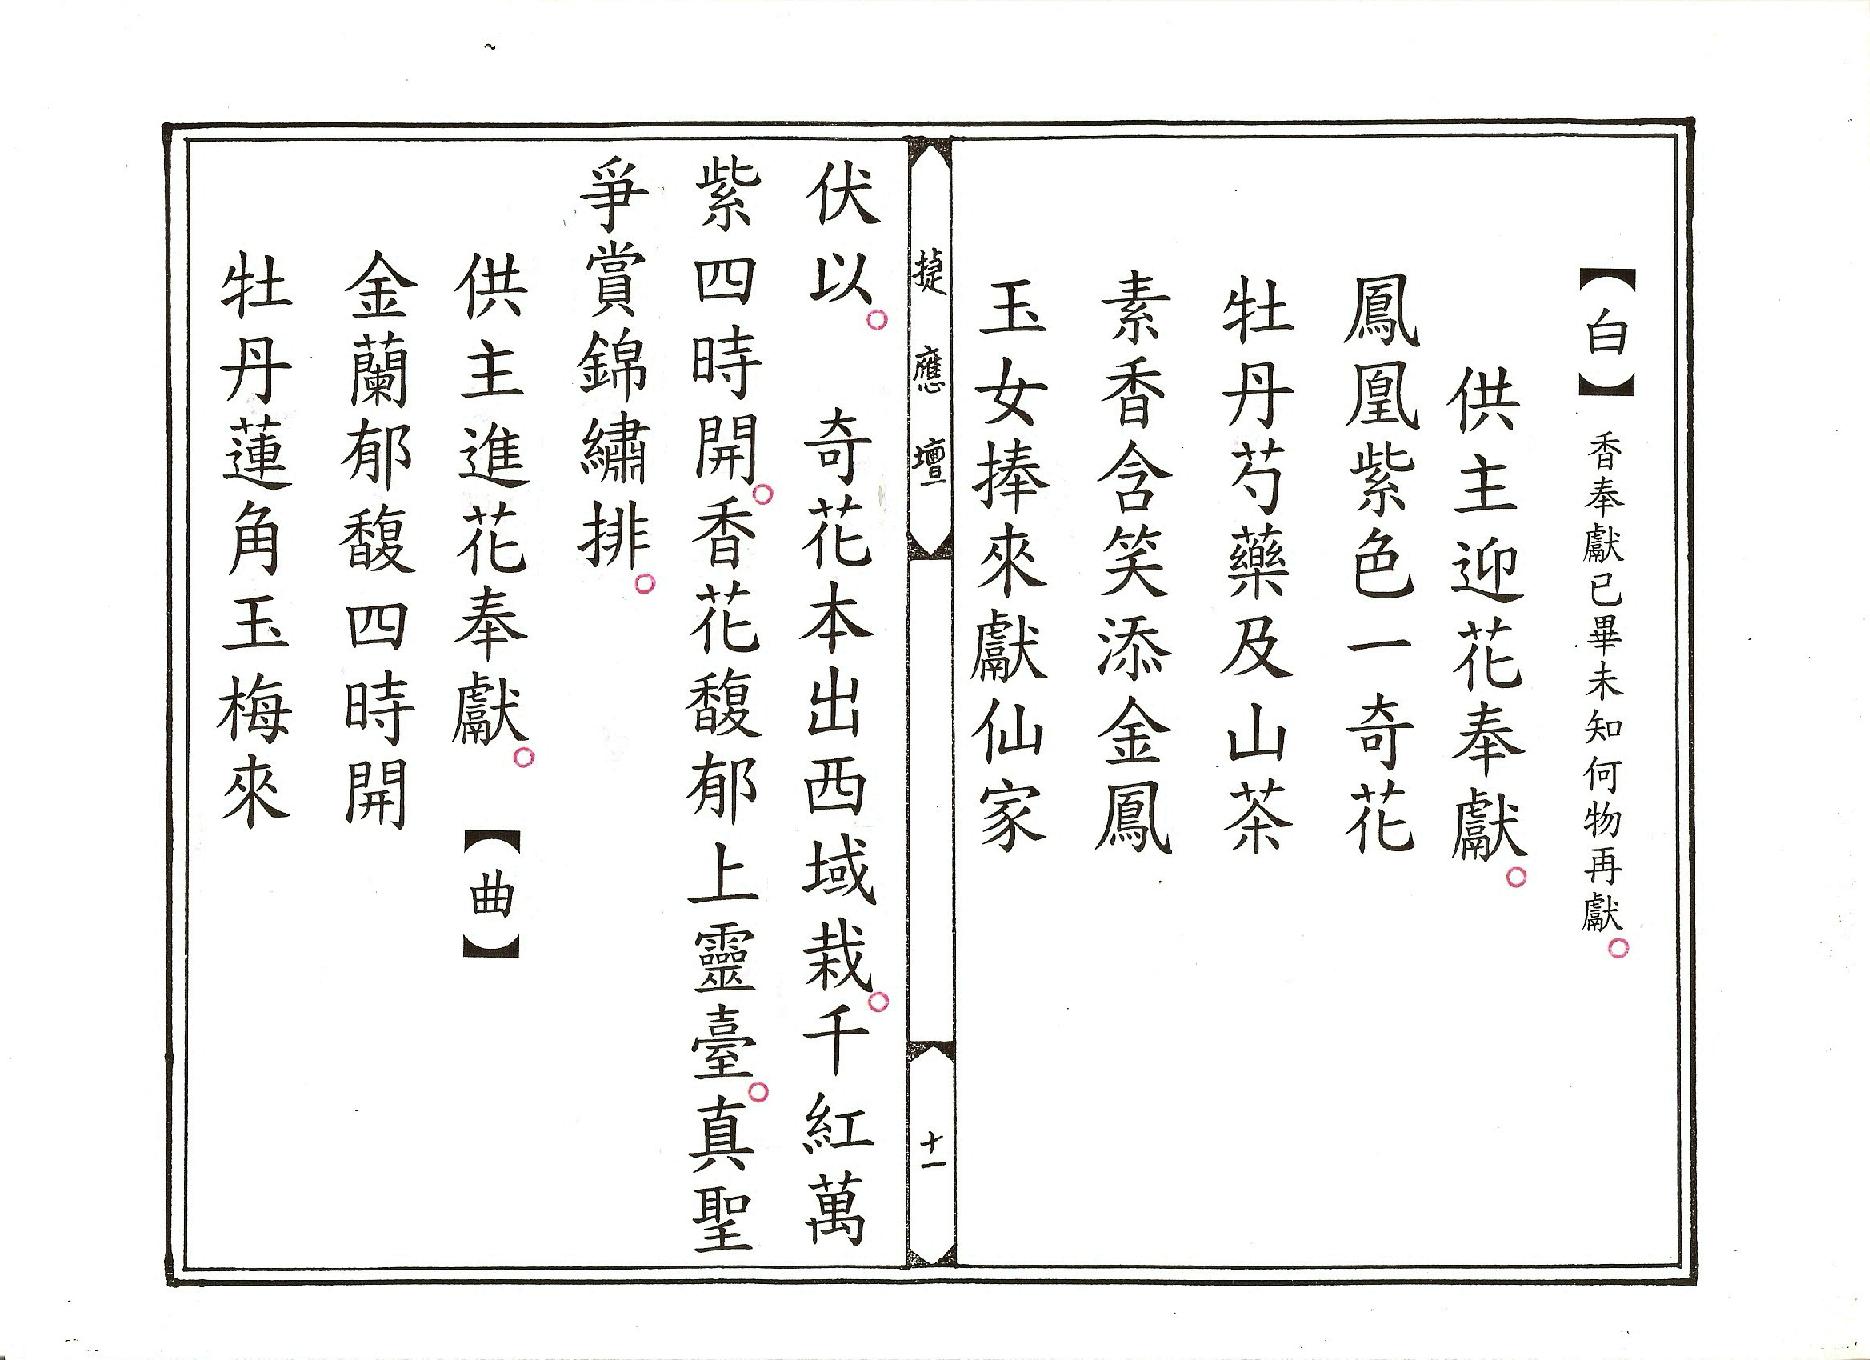 【白】香奉獻已畢未知何物再獻。
供主迎花奉獻。
鳳凰紫色一奇花
牡丹芍藥及山茶
素香含笑添金鳳
玉女捧來獻仙家
捷應壇
十一
伏以。　奇花本出西域栽。千紅萬
紫四時開。香花馥郁上靈臺。真聖
爭賞錦繡排。
供主進花奉獻。【曲】
金蘭郁馥四時開
牡丹蓮角玉梅來